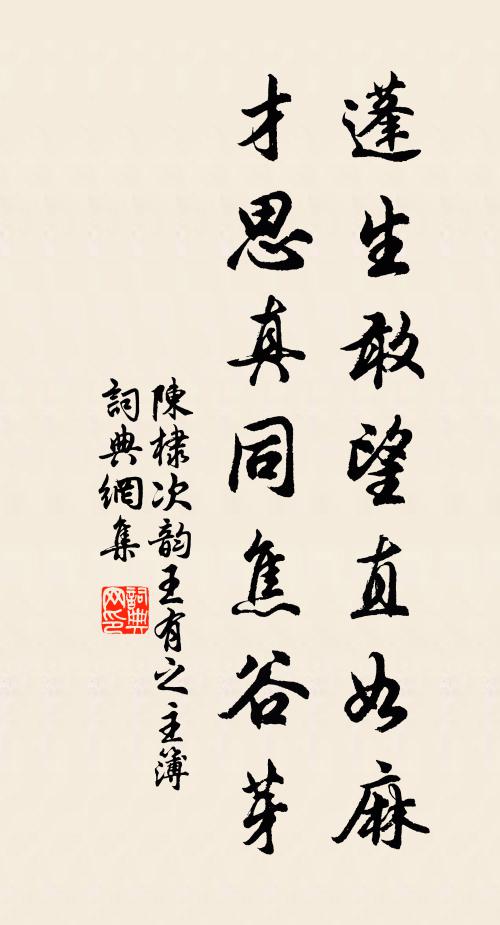 蓬生敢望直如麻
才思真同焦谷芽
陳棣次韵王有之主簿
詞典網集
詞典网印